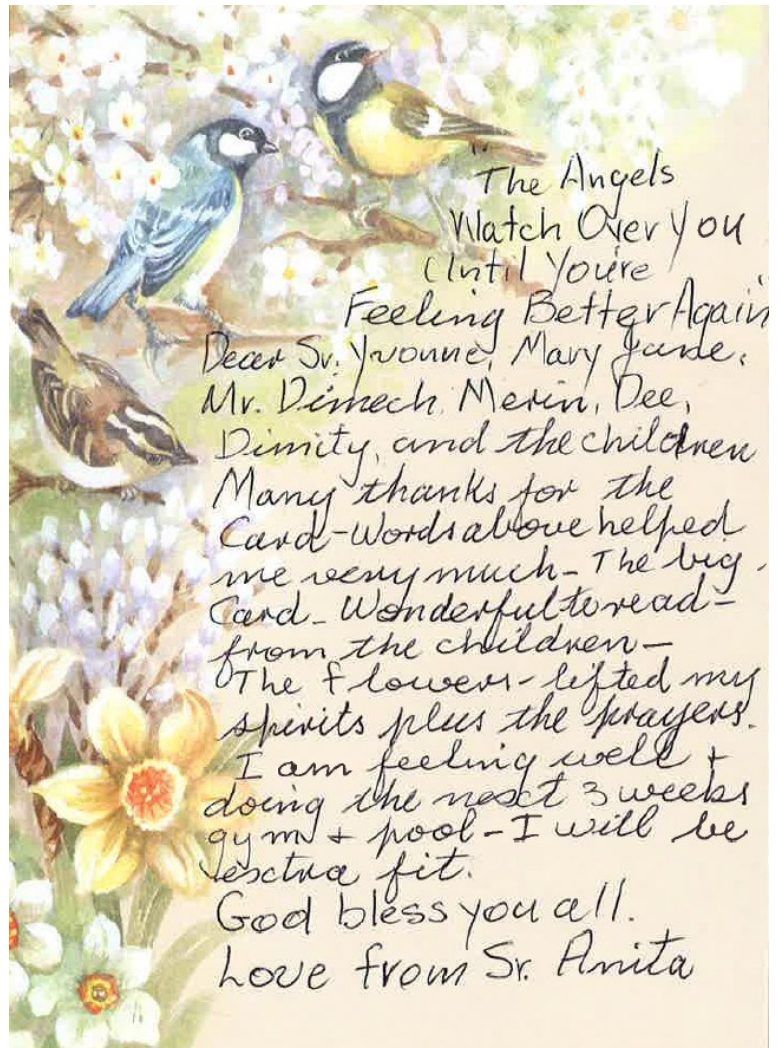 "The Angels
Watch Over You
Until You're
Feeling Better Again"
Dear Sr. Yvonne, Mary Jane,
Mr. Dimech, Merin, Dee,
Dimity, and the children
Many thanks for the
Card-Words above helped
me very much - The big
Card - Wonderful to read -
from the children -
The flowers - lifted my
spirits plus the prayers.
I am feeling well +
doing the next 3 weeks
gym + pool - I will be
extra fit.
God bless you all.
Love from Sr. Anita